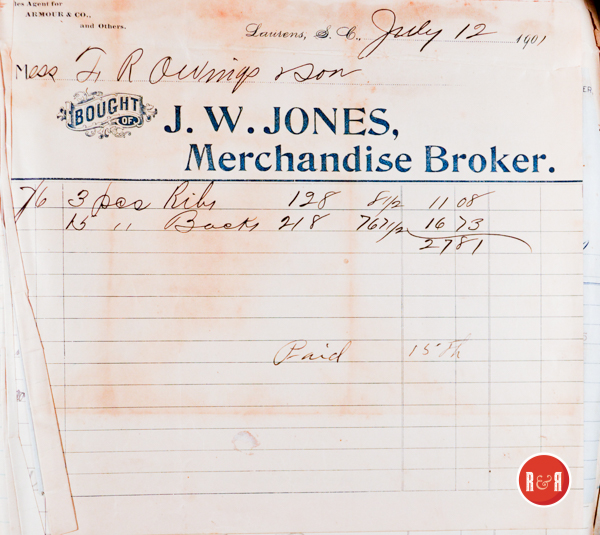 les Agent for
ARMOUR & CO.,
and Others.
Laurens, S. C., July 12 1901
Mess F R Owings & Son
BOUGHT OF
J. W. JONES,
Merchandise Broker.
7/6 3 pcs Ribs 128 8 1/2 11 08
15 " Backs 218 16 73
27 81
Paid 15th
R&R